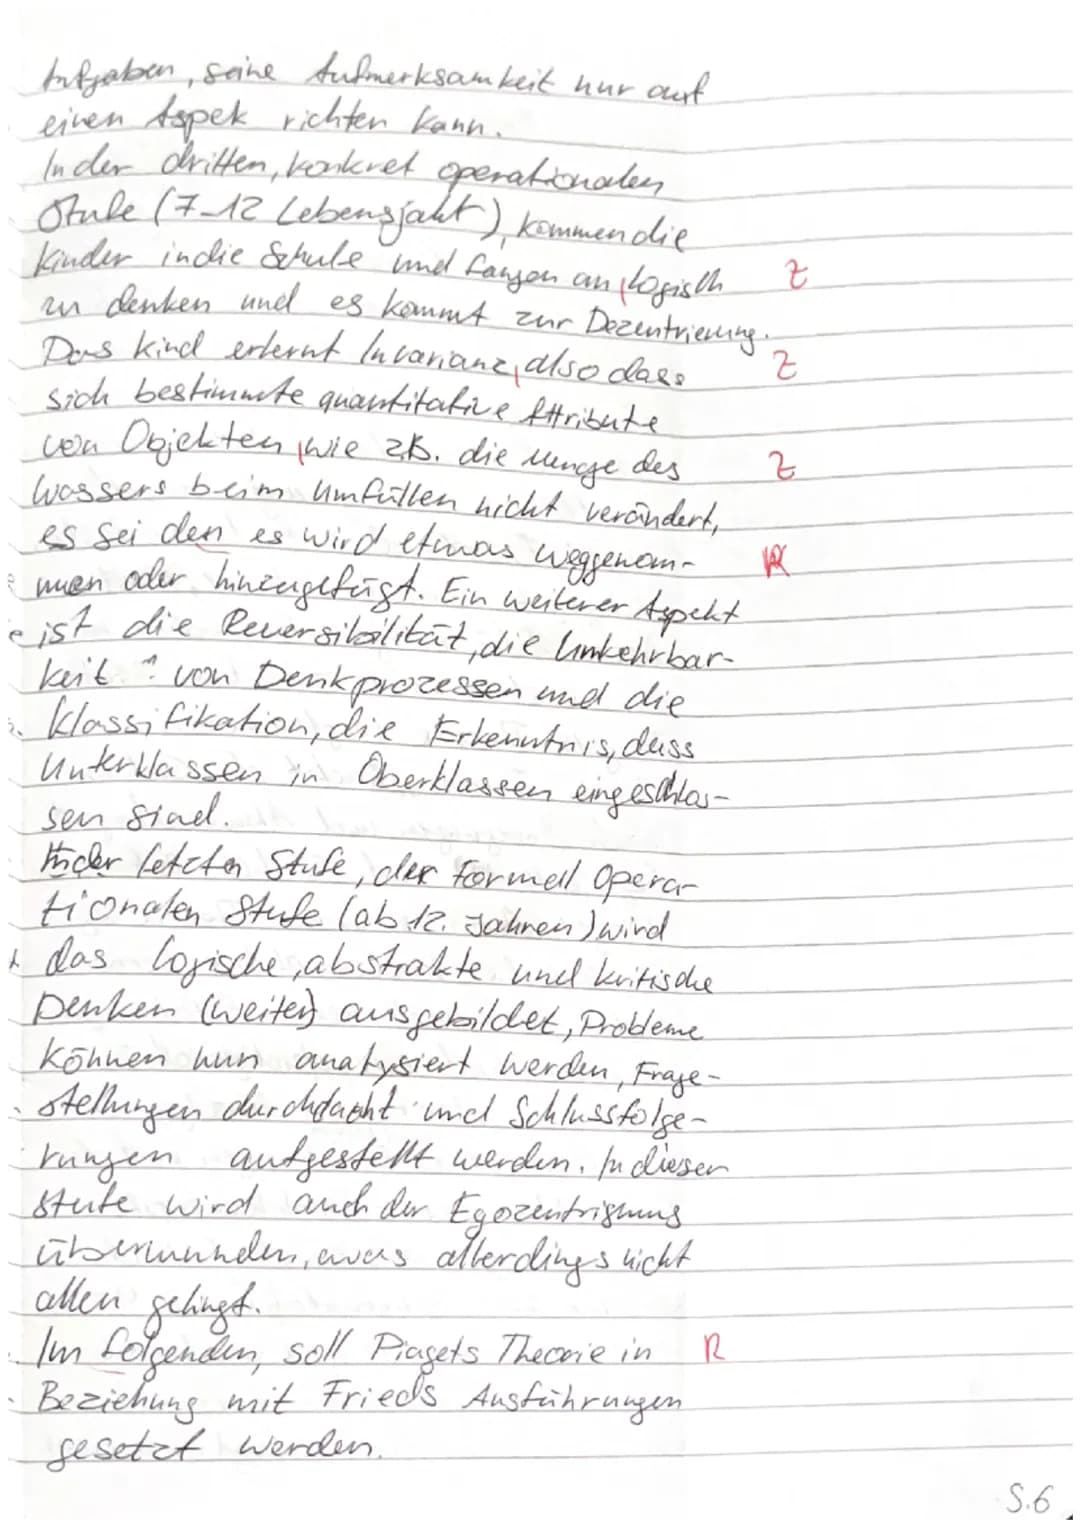 Aufgaben, seine Aufmerksamkeit nur auf
einen Aspek richten kann.
In der dritten, konkret operationalen
Stufe (7-12 Lebensjaht), kommen die
Kinder in die Schule und fangen an, logisch Z
zu denken und es kommt zur Dezentrierung.
Das Kind erlernt Invarianz, also dass Z
sich bestimmte quantitative Attribute
von Objekten, wie z.B. die Menge des Z
Wassers beim Umfüllen nicht verändert,
es sei den es wird etwas weggenom- R
men oder hinzugefügt. Ein weiterer Aspekt
ist die Reversibilität, die Umkehrbar-
keit von Denkprozessen und die
Klassifikation, die Erkenntnis, dass
Unterklassen in Oberklassen eingeschlos-
sen sind.
In der letzten Stufe, der formell Opera-
tionalen Stufe (ab 12. Jahren) wird
das logische, abstrakte und kritische
Denken (weiter) ausgebildet, Probleme
können nun analysiert werden, Frage-
stellungen durchdacht und Schlussfolge-
rungen aufgestellt werden. In dieser
Stufe wird auch der Egozentrismus
überwunden, was allerdings nicht
allen gelingt.
Im folgenden, soll Piagets Theorie in R
Beziehung mit Frieds Ausführungen
gesetzt werden.
S.6